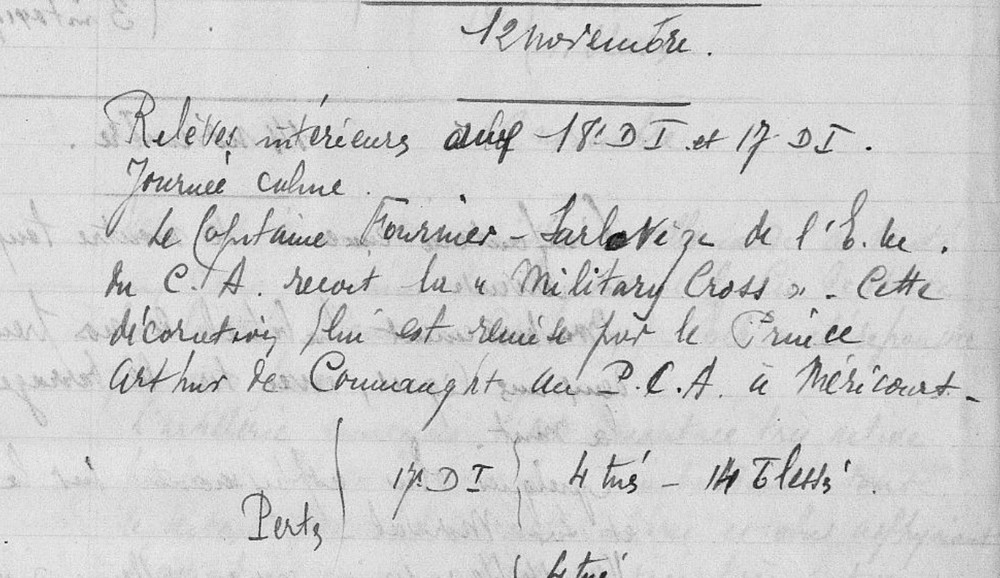 12 novembre.
Relèves intérieures aux 18e D I et 17 D I.
Journée calme.
Le Capitaine Fournier-Sarlovèze de l'E. M.
du C. A. reçoit la « Military Cross ». Cette
décoration lui est remise par le Prince
Arthur de Connaught au P. C. A. à Méricourt.
Pertes 17e D I 4 tués - 14 blessés.
4 tués